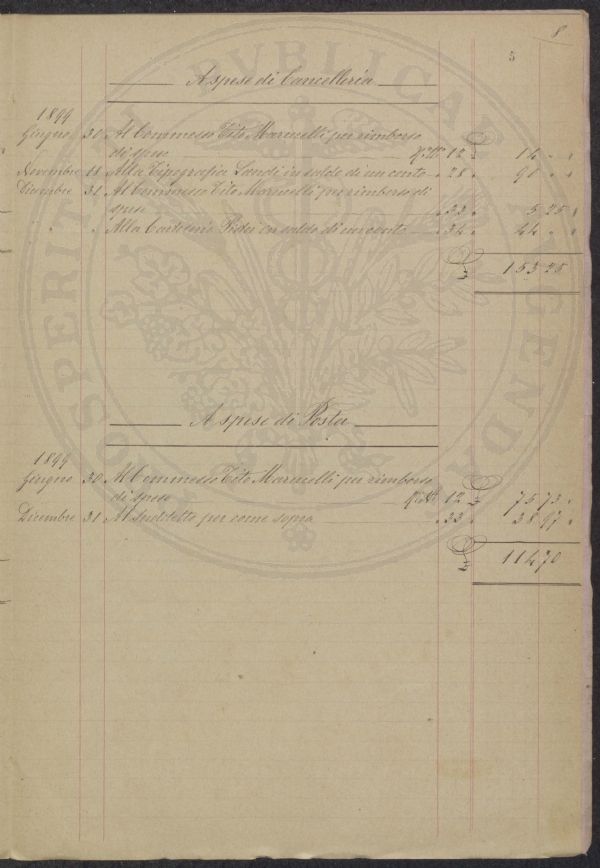 8
5
A spese di Cancelleria
1899
Giugno 30 Al Commesso Tito Marucelli per rimborso
di spese Ric. N. 12 £ 14 " "
Novembre 18 Alla Tipografia Landi in saldo di un conto " 28 " 90 " "
Dicembre 31 Al Commesso Tito Marucelli per rimborso di
spese " 33 " 5 25 "
" " Alla Cartoleria in saldo di un conto " 34 " 44 " "
£ 153 25
A spese di Posta
1899
Giugno 30 Al Commesso Tito Marucelli per rimborso
di spese Ric. N. 12 £ 75 73 "
Dicembre 31 Al suddetto per come sopra " 33 " 38 97 "
£ 114 70
PVBLICAE
PROSPERITATI
AVGENDAE